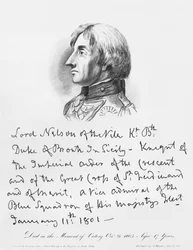 Lord Nelson of the Nile Kt Bth
Duke of Bronti In Sicily - Knight of
The Imperial order of the Crescent
and of the Great Cross of St Ferdinand
and of Merit, a Vice admiral of the
Blue Squadron of His Majestys Fleet
January 11th 1801 —